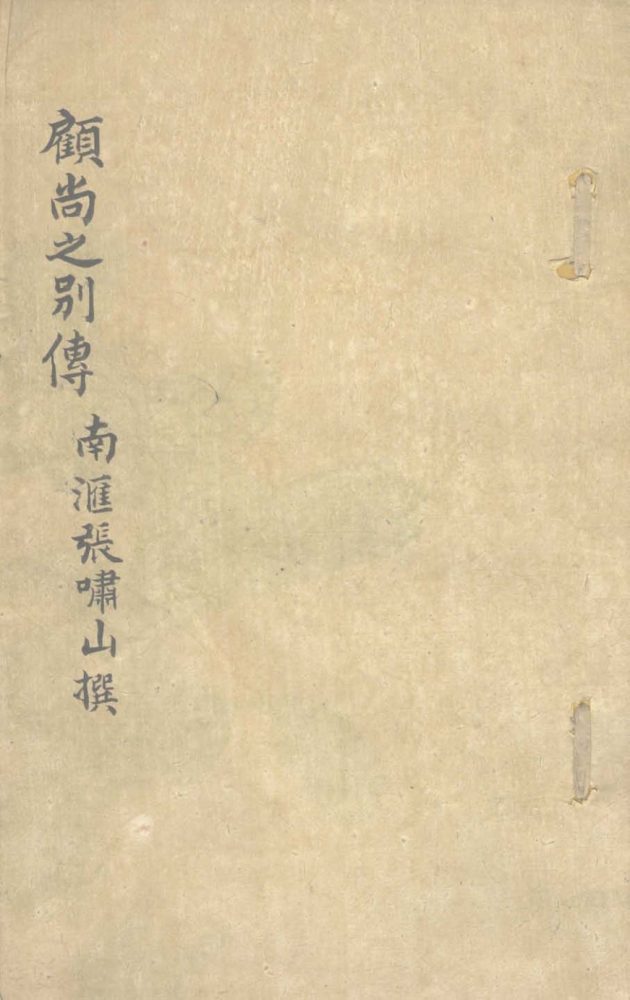 顧尚之別傳
南滙張嘯山撰